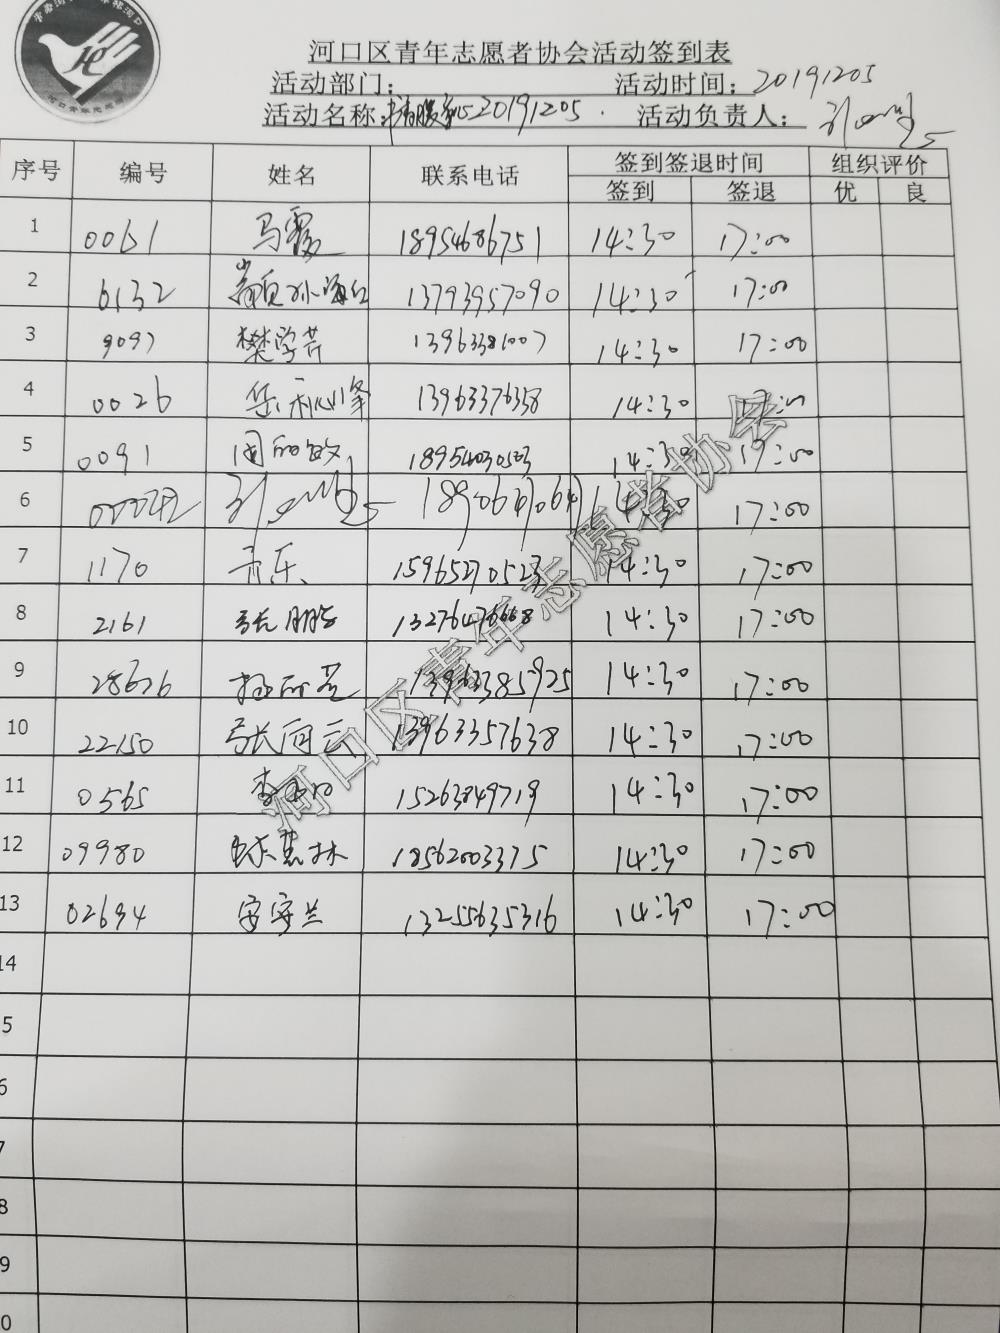 河口区青年志愿者协会活动签到表
活动部门: 活动时间: 20191205
活动名称: 20191205 活动负责人:
序号 编号 姓名 联系电话 签到签退时间 组织评价
签到 签退 优 良
1 0061 马霞 18954686751 14:30 17:00
2 6132 孙海红 13793957090 14:30 17:00
3 9097 樊学芹 13963381007 14:30 17:00
4 0026 岳利峰 13963376338 14:30 17:00
5 0091 18954030503 14:30 17:00
6 14:30 17:00
7 1170 15965270523 14:30 17:00
8 2161 张鹏 13276476668 14:30 17:00
9 28626 13963385925 14:30 17:00
10 22150 张向云 13963357638 14:30 17:00
11 0565 15263849719 14:30 17:00
12 09980 慧林 18562003375 14:30 17:00
13 02694 安安兰 13255635316 14:30 17:00
14
5
6
7
8
9
0
河口区青年志愿者协会